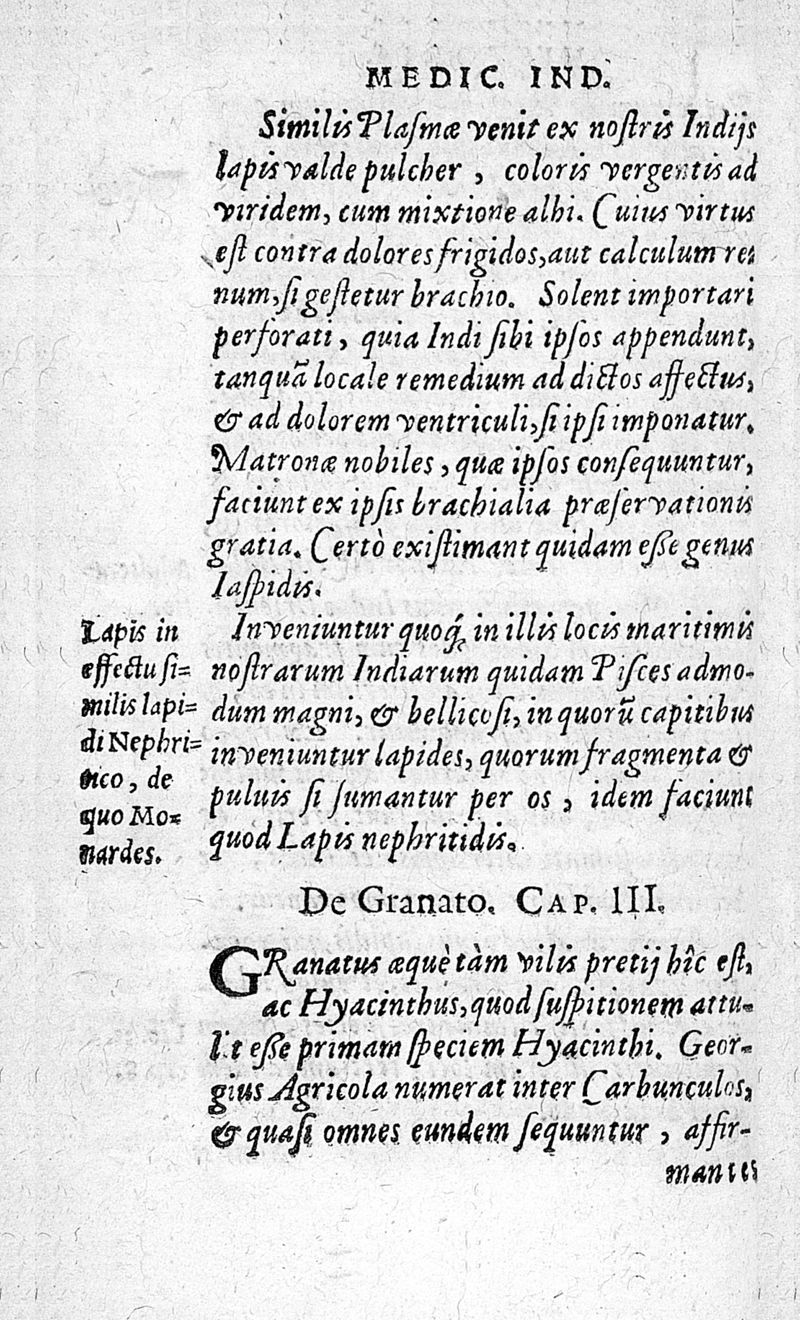 MEDIC. IND.
Similis Plaſmæ venit ex noſtris Indijs
lapis valde pulcher, coloris vergentis ad
viridem, cum mixtione albi. Cuius virtus
eſt contra dolores frigidos, aut calculum re-
num, ſi geſtetur brachio. Solent importari
perforati, quia Indi ſibi ipſos appendunt,
tanquã locale remedium ad dictos affectus,
& ad dolorem ventriculi, ſi ipſi imponatur.
Matronæ nobiles, quæ ipſos conſequuntur,
faciunt ex ipſis brachialia præſervationis
gratia. Certò exiſtimant quidam eſſe genus
Iaſpidis.
Inveniuntur quoq́; in illis locis maritimis
noſtrarum Indiarum quidam Piſces admo-
dum magni, & bellicoſi, in quorũ capitibus
inveniuntur lapides, quorum fragmenta &
puluis ſi ſumantur per os, idem faciunt
quod Lapis nephritidis.
Lapis in
effectu ſi-
milis lapi-
di Nephri-
tico, de
quo Mo-
nardes.
De Granato. CAP. III.
GRanatus æquè tàm vilis pretij hîc eſt,
ac Hyacinthus, quod ſuſpitionem attu-
lit eſſe primam ſpeciem Hyacinthi. Geor-
gius Agricola numerat inter Carbunculos,
& quaſi omnes eundem ſequuntur, affir-
mantes